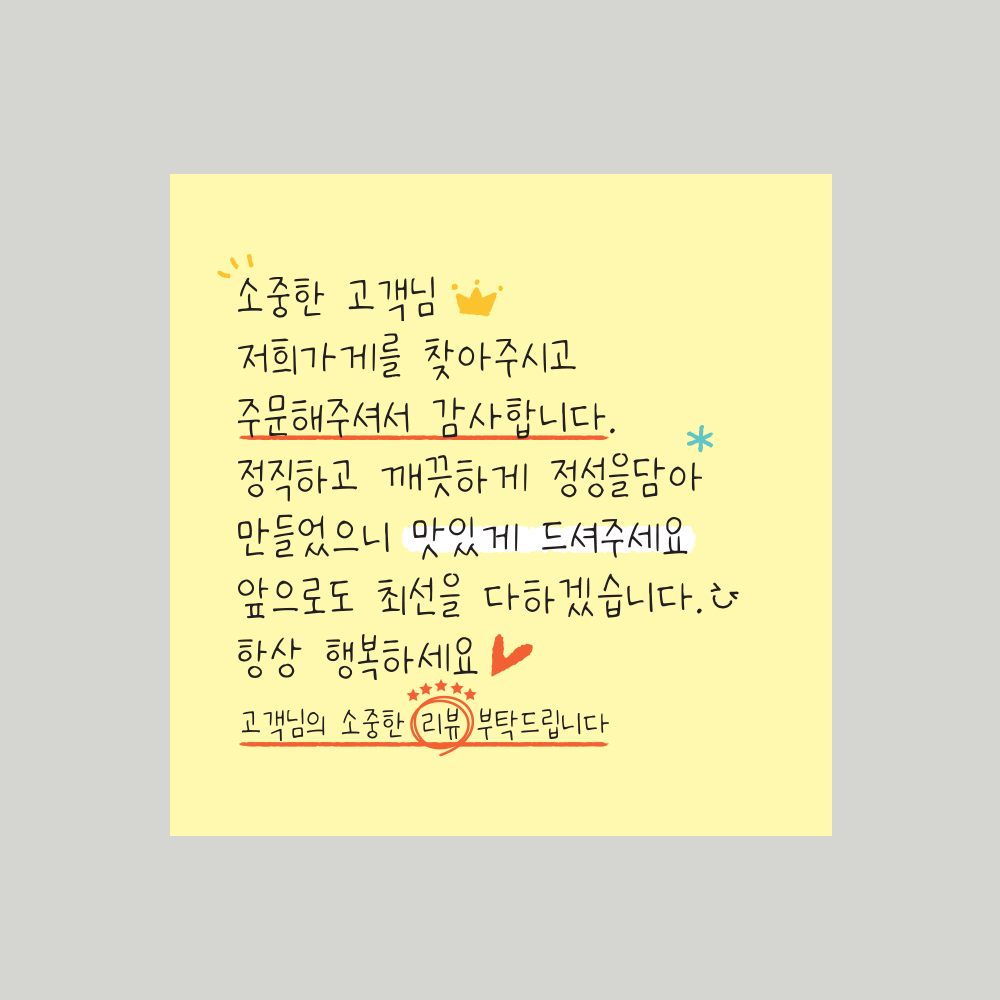 소중한 고객님
저희가게를 찾아주시고
주문해주셔서 감사합니다.
정직하고 깨끗하게 정성을담아
만들었으니 맛있게 드셔주세요
앞으로도 최선을 다하겠습니다.
항상 행복하세요
고객님의 소중한 리뷰 부탁드립니다